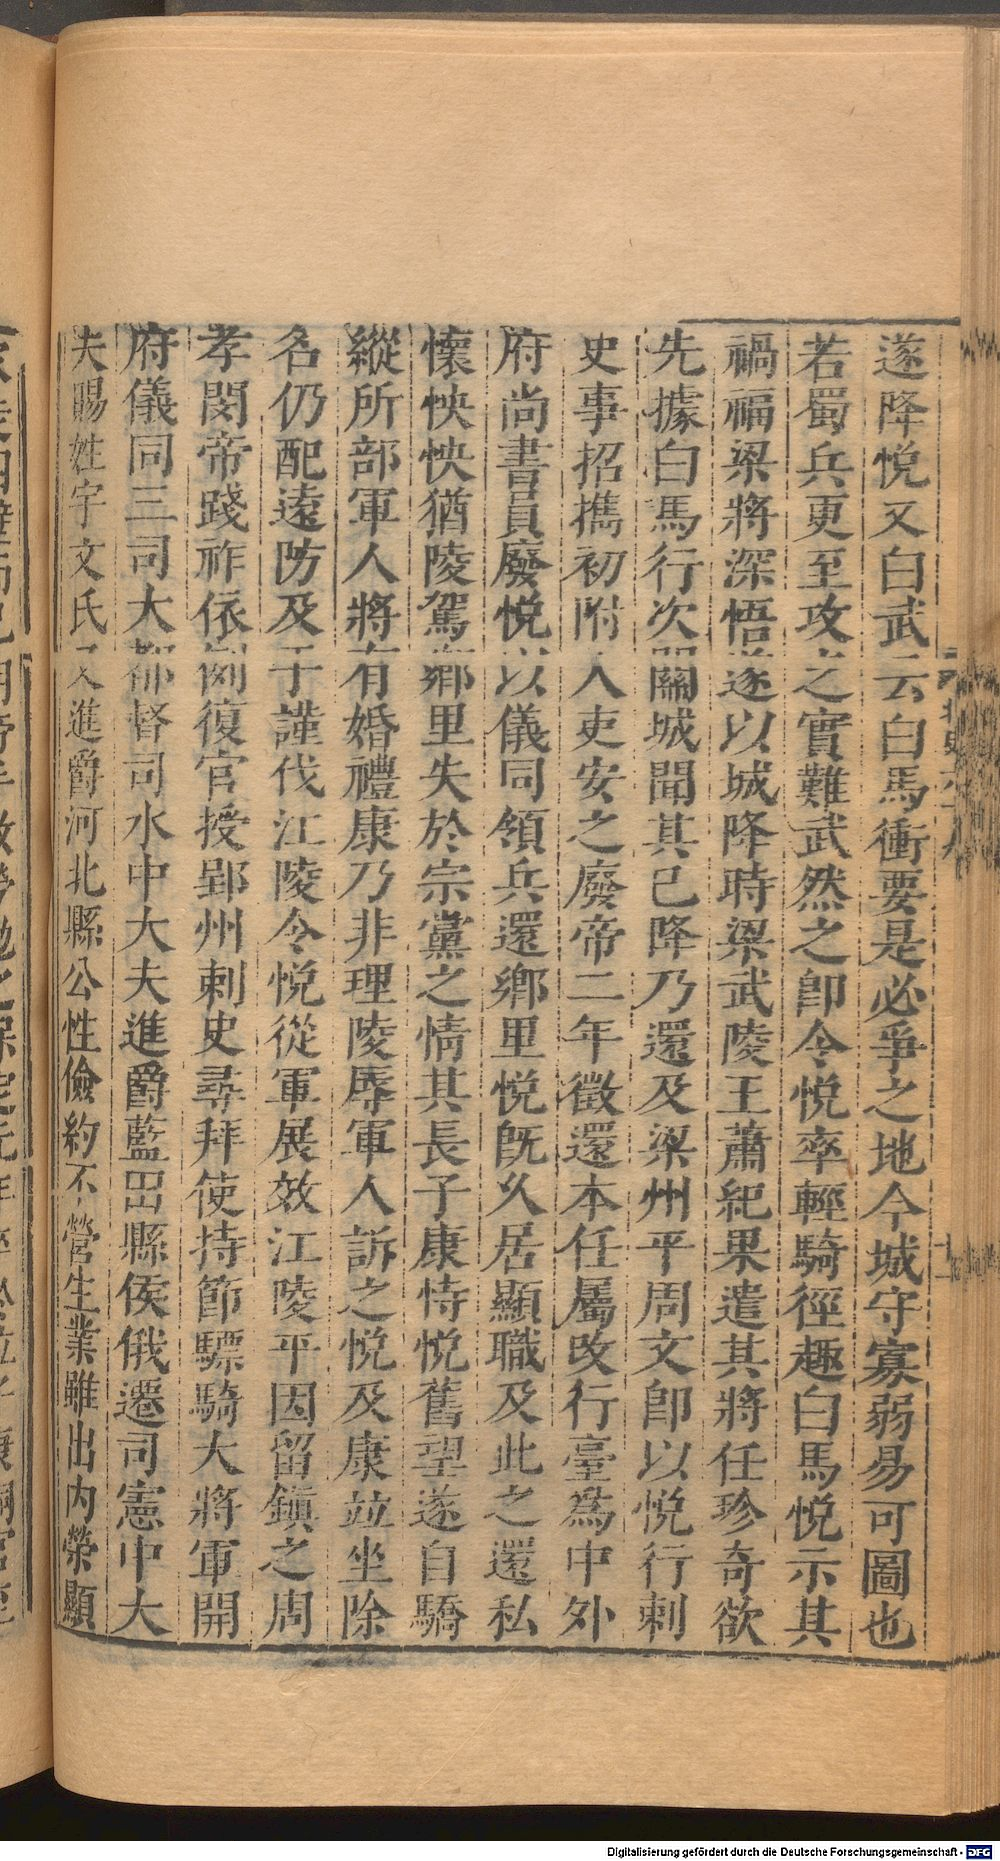 遂降悅又白武云白馬衝要是必爭之地今城守寡弱易可圖也
若蜀兵更至攻之實難武然之卽令悅率輕騎徑趣白馬悅示其
禍福梁將深悟遂以城降時梁武陵王蕭紀果遣其將任珍奇欲
先據白馬行次關城聞其已降乃還及梁州平周文卽以悅行刺
史事招攜初附人吏安之廢帝二年徵還本任屬改行臺爲中外
府尚書員廢悅以儀同領兵還鄉里悅旣久居顯職及此之還私
懷怏怏猶陵駕鄉里失於宗黨之情其長子康恃悅舊望遂自驕
縱所部軍人將有婚禮康乃非理陵辱軍人訴之悅及康竝坐除
名仍配遠防及于謹伐江陵令悅從軍展效江陵平因留鎮之周
孝閔帝踐祚依例復官授郢州刺史尋拜使持節驃騎大將軍開
府儀同三司大都督司水中大夫進爵藍田縣侯俄遷司憲中大
夫賜姓宇文氏又進爵河北縣公性儉約不營生業雖出內榮顯
Digitalisierung gefördert durch die Deutsche Forschungsgemeinschaft - DFG